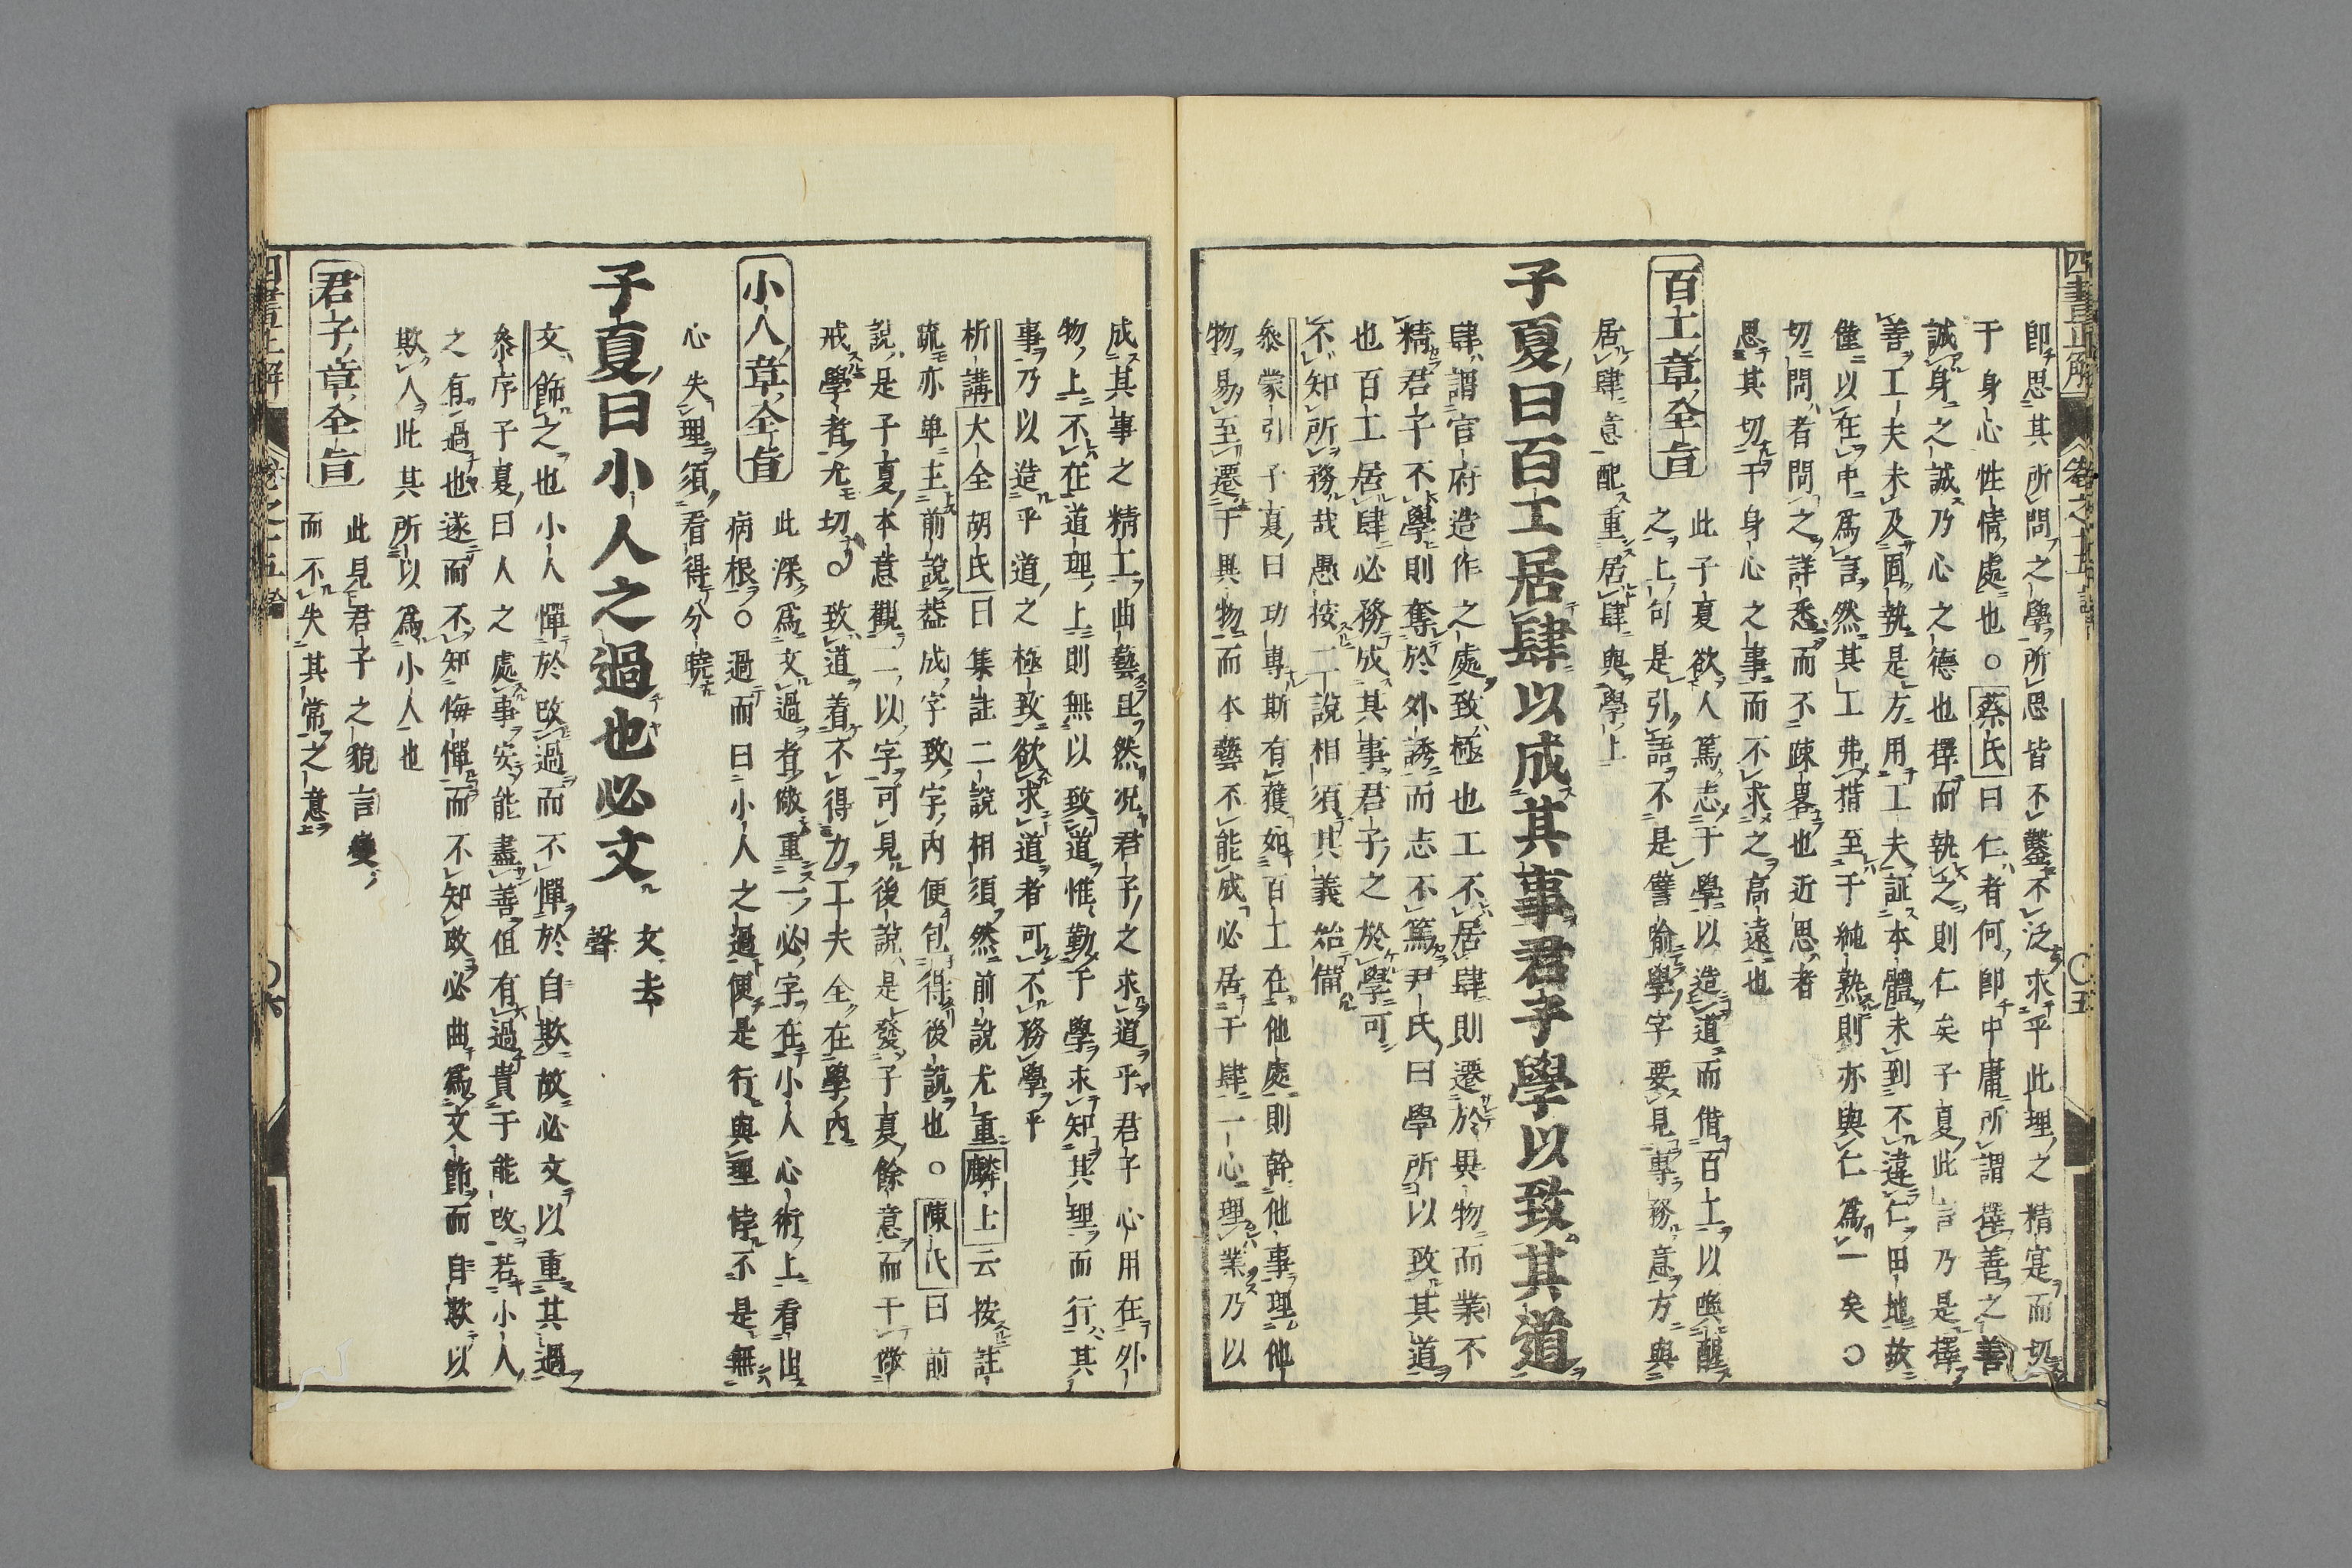 四書正解
卷之十五
〇五
即思其所問之學所思皆不鑿不泛求乎此理之精寔而切
于身心性情處也○蔡氏曰仁者何即中庸所謂擇善之善
誠身之誠乃心之德也擇而執之則仁矣子夏此言乃是擇
善工夫未及固執是方用工夫証本體未到不違仁田地故
僅以在中爲言然其工弗措至于純熟則亦與仁爲一矣○
切問者問之詳悉而不踈畧也近思者
思其切于身心之事而不求之高遠也
百工章全旨
此子夏欲人篤志于學以造道而借百工以喚醒
之上句是引語不是譬喻學字要見專務意方與
居肆意配重居肆與學上
子夏曰百工居肆以成其事君子學以致其道
肆謂官府造作之處致極也工不居肆則遷於異物而業不
精君子不學則奪於外誘而志不篤尹氏曰學所以致其道
也百工居肆必務成其事君子之於學可
不知所務哉愚按二說相須其義始備
叅蒙引子夏曰功專斯有獲如百工在他處則幹他事理他
物易至遷于異物而本藝不能成必居于肆一心理業乃以
成其事之精工曲藝且然况君子之求道乎君子心用在外
物上不在道理上則無以致道惟勤于學求知其理而行其
事乃以造乎道之極致欲求道者可不務學乎
析講大全胡氏曰集註二說相須然前說尤重麟上云按註
疏亦単主前說葢成字致字內便包得後說也○陳氏曰前
說是子夏本意觀二以字可見後說是發子夏餘意而干儆
戒學者尤切○致道着不得力工夫全在學內
小人章全旨
此深爲文過者儆重一必字在小人心術上看出
病根○過而曰小人之過便是行與理悖不是無
心失理須看得分曉
子夏曰小人之過也必文
文去
聲
文飾之也小人憚於改過而不憚於自欺故必文以重其過
叅序子夏曰人之處事安能盡善但有過貴于能改若小人
之有過也遂而不知悔憚而不知改必曲爲文飾而自欺以
欺人此其所以爲小人也
君子章全旨
此見君子之貌言變
而不失其常之意
〇六